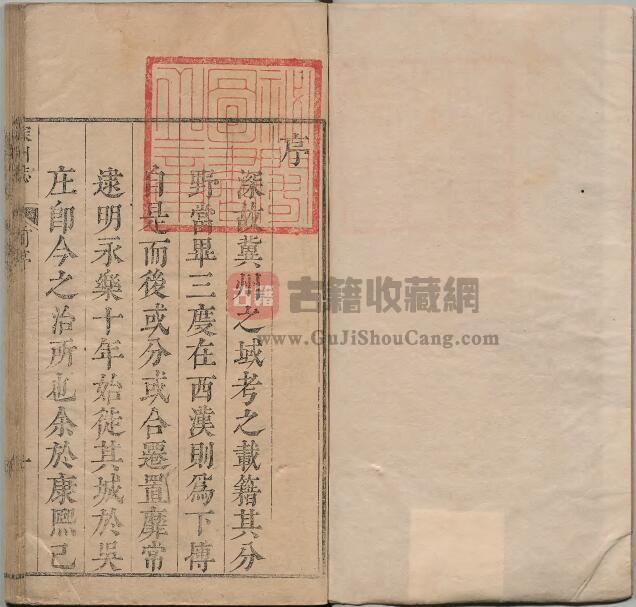 序
深故冀州之域考之載籍其分
野當畢三度在西漢則爲下博
自是而後或分或合遷置靡常
逮明永樂十年始徙其城於吳
庄即今之治所也余於康熙己
深州志
序
一
古籍
古籍收藏網
www.GuJiShouCang.com